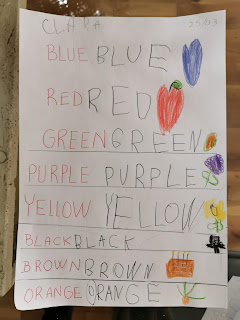 CLARA 25.03
BLUE BLUE
RED RED
GREEN GREEN
PURPLE PURPLE
YELLOW YELLOW
BLACK BLACK
BROWN BROWN
ORANGE ORANGE